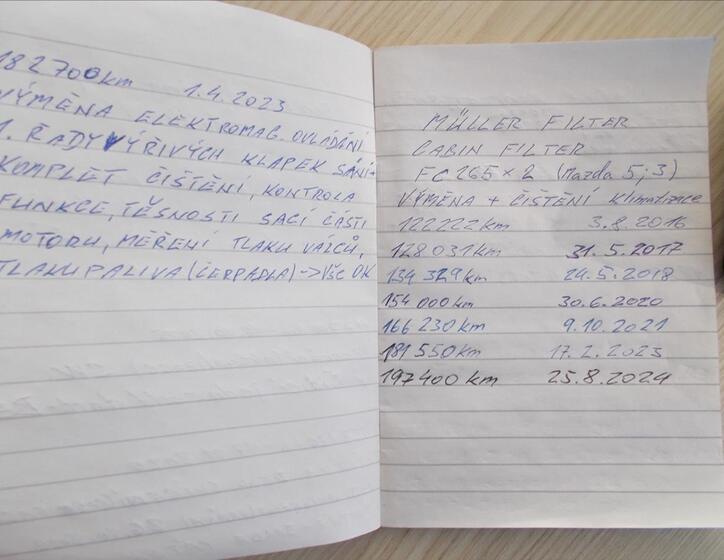 182 700km 1.4.2023
VÝMĚNA ELEKTROMAG. OVLÁDÁNÍ
1. ŘADY VÝŘIVÝCH KLAPEK SÁNÍ+
KOMPLET ČIŠTĚNÍ, KONTROLA
FUNKCE, TĚSNOSTI SACÍ ČÁSTI
MOTORU, MĚŘENÍ TLAKU VÁLCŮ,
TLAKU PALIVA (ČERPADLA) -> VŠE OK
MÜLLER FILTER
CABIN FILTER
FC 265 x 2 (Mazda 5; 3)
VÝMĚNA + ČIŠTĚNÍ klimatizace
122222 km 3.8.2016
128 031 km 31.5.2017
134 329 km 24.5.2018
154 000 km 30.6.2020
166 230 km 9.10.2021
181 550 km 17.2.2023
197400 km 25.8.2024